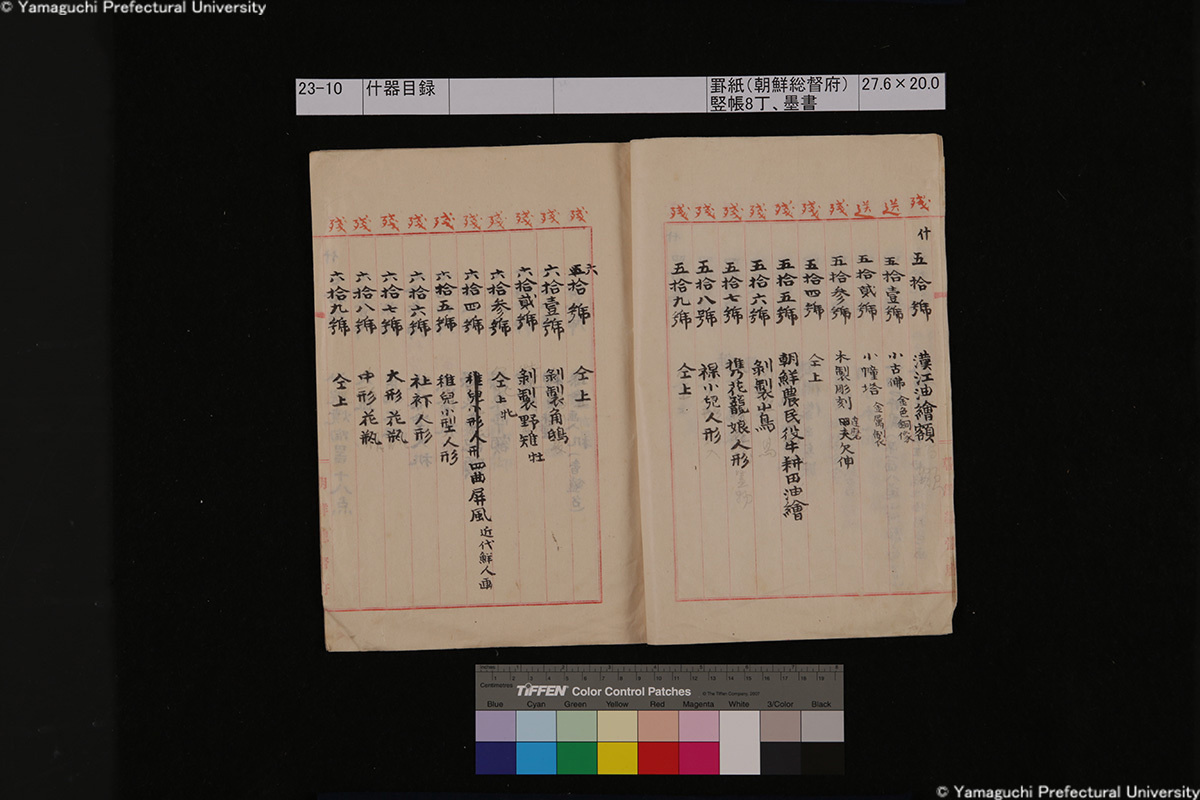 © Yamaguchi Prefectural University
23-10 什器目録 罫紙(朝鮮総督府) 27.6×20.0
竪帳8丁、墨書
残 什 五拾號 漢江油繪額
送 五拾壹號 小古佛 金色銅像
送 五拾貳號 小幢塔 金属製
残 五拾參號 木製彫刻 達磨欠伸
残 五拾四號 仝上
残 五拾五號 朝鮮農民役牛耕田油繪
残 五拾六號 剝製山鳥
残 五拾七號 携花籠娘人形
残 五拾八號 裸小兒人形
残 五拾九號 仝上
残 六拾號 仝上
残 六拾壹號 剝製角鴟
残 六拾貳號 剝製野雉 牡
残 六拾參號 仝上 牝
残 六拾四號 四曲屏風 近代鮮人画
残 六拾五號 稚兒小型人形
残 六拾六號 人形
残 六拾七號 大形花瓶
残 六拾八號 中形花瓶
残 六拾九號 仝上
inches 1 2 3 4 5 6 7 8
Centimetres 1 2 3 4 5 6 7 8 9 10 11 12 13 14 15 16 17 18 19
TIFFEN Color Control Patches © The Tiffen Company, 2007
Blue Cyan Green Yellow Red Magenta White 3/Color Black
© Yamaguchi Prefectural University